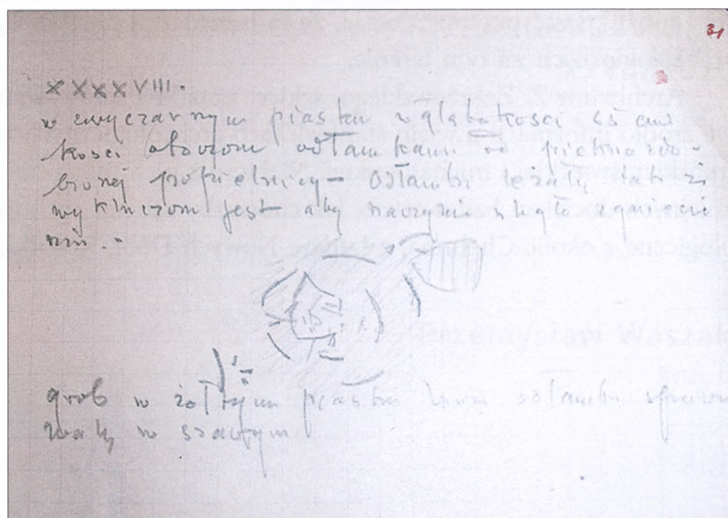 31
XXXXVIII.
w zwyczajnym piasku w głębokości 65 cm
kości otoczone odłamkami od pięknie zdo-
bionej popielnicy - odłamki leżały tak iż
wykluczone jest aby naczynie było zgniecio
ne.
grób w żółtym piasku odłamki
w szarym